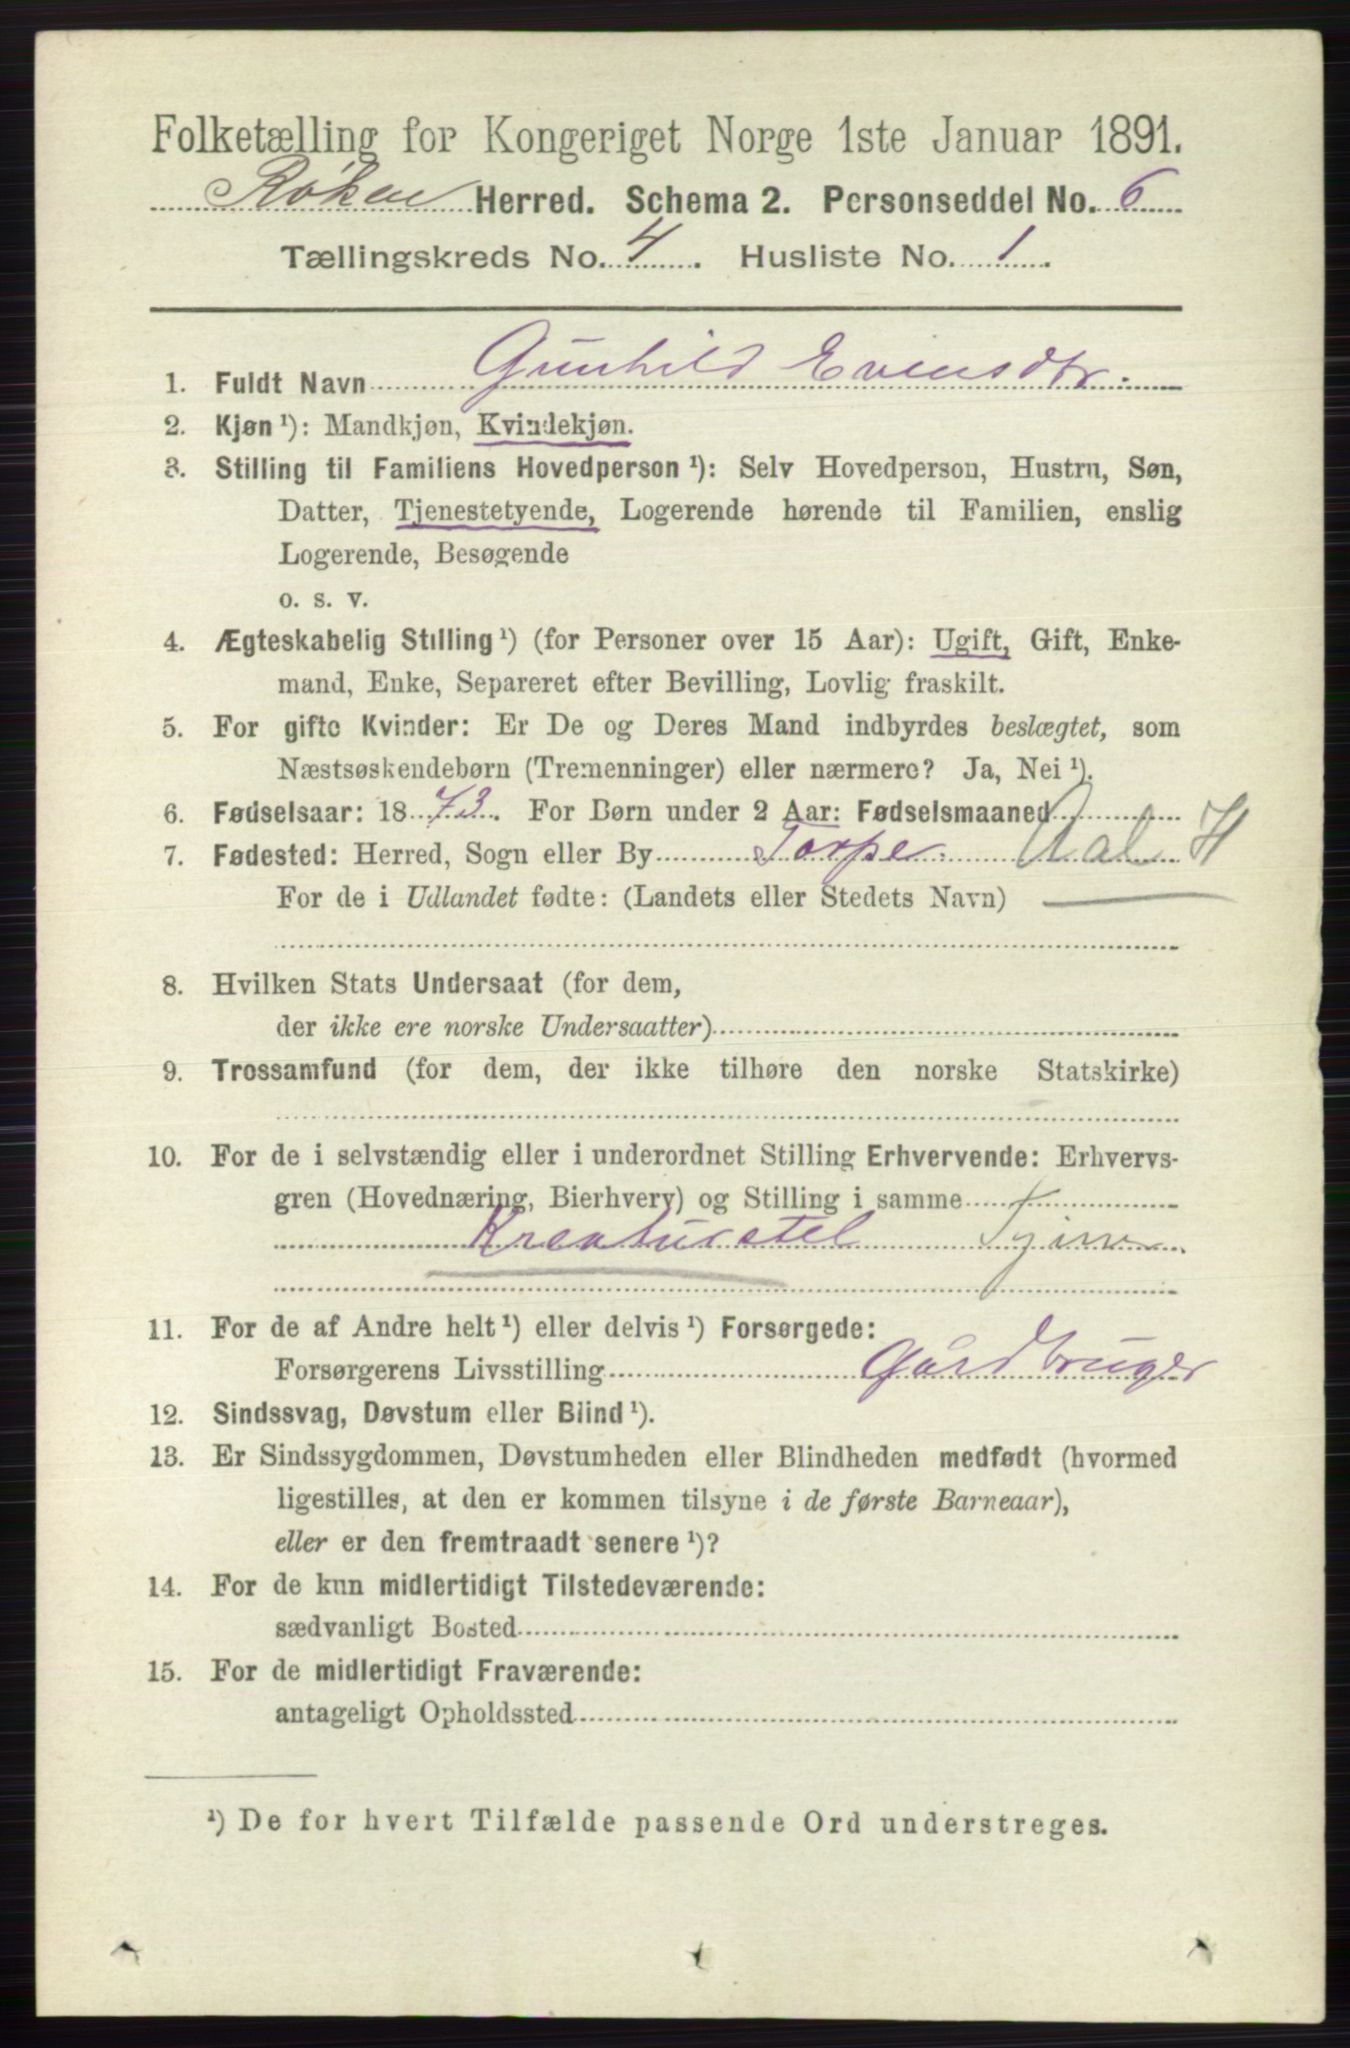 Folketælling for Kongeriget Norge 1ste Januar 1891.
Røken Herred. Schema 2. Personseddel No. 6
Tællingskreds No. 4. Husliste No. 1.
1. Fuldt Navn Gunhild Evensdtr.
2. Kjøn ¹): Mandkjøn, Kvindekjøn.
3. Stilling til Familiens Hovedperson ¹): Selv Hovedperson, Hustru, Søn,
Datter, Tjenestetyende, Logerende hørende til Familien, enslig
Logerende, Besøgende
o. s. v.
4. Ægteskabelig Stilling ¹) (for Personer over 15 Aar): Ugift, Gift, Enke-
mand, Enke, Separeret efter Bevilling, Lovlig fraskilt.
5. For gifte Kvinder: Er De og Deres Mand indbyrdes beslægtet, som
Næstsøskendebørn (Tremenninger) eller nærmere? Ja, Nei ¹).
6. Fødselsaar: 1873. For Børn under 2 Aar: Fødselsmaaned
7. Fødested: Herred, Sogn eller By Torpe. Aal H
For de i Udlandet fødte: (Landets eller Stedets Navn)
8. Hvilken Stats Undersaat (for dem,
der ikke ere norske Undersaatter)
9. Trossamfund (for dem, der ikke tilhøre den norske Statskirke)
10. For de i selvstændig eller i underordnet Stilling Erhvervende: Erhvervs-
gren (Hovednæring, Bierhverv) og Stilling i samme
Kreaturstel
11. For de af Andre helt ¹) eller delvis ¹) Forsørgede:
Forsørgerens Livsstilling Gårdbruger
12. Sindssvag, Døvstum eller Blind ¹).
13. Er Sindssygdommen, Døvstumheden eller Blindheden medfødt (hvormed
ligestilles, at den er kommen tilsyne i de første Barneaar),
eller er den fremtraadt senere ¹)?
14. For de kun midlertidigt Tilstedeværende:
sædvanligt Bosted
15. For de midlertidigt Fraværende:
antageligt Opholdssted
¹) De for hvert Tilfælde passende Ord understreges.